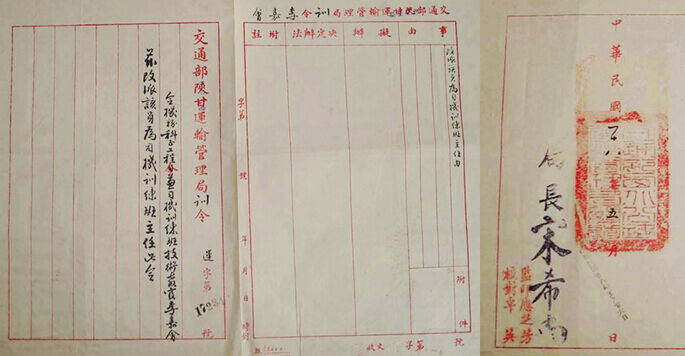 交通部陝甘運輸管理局訓令
事由
擬辦
決定辦法
附註
改派該員為司機訓練班主任由
附件
字第 號
年 月 日 時
收文 字第 號
交通部陝甘運輸管理局訓令
運字第17234號
令機務科正工程員兼司機訓練班技術主任李嘉會
茲改派該員為司機訓練班主任此令
中華民國二八年五月 日
局長宋希尚
監印應芝芳
校對卓英